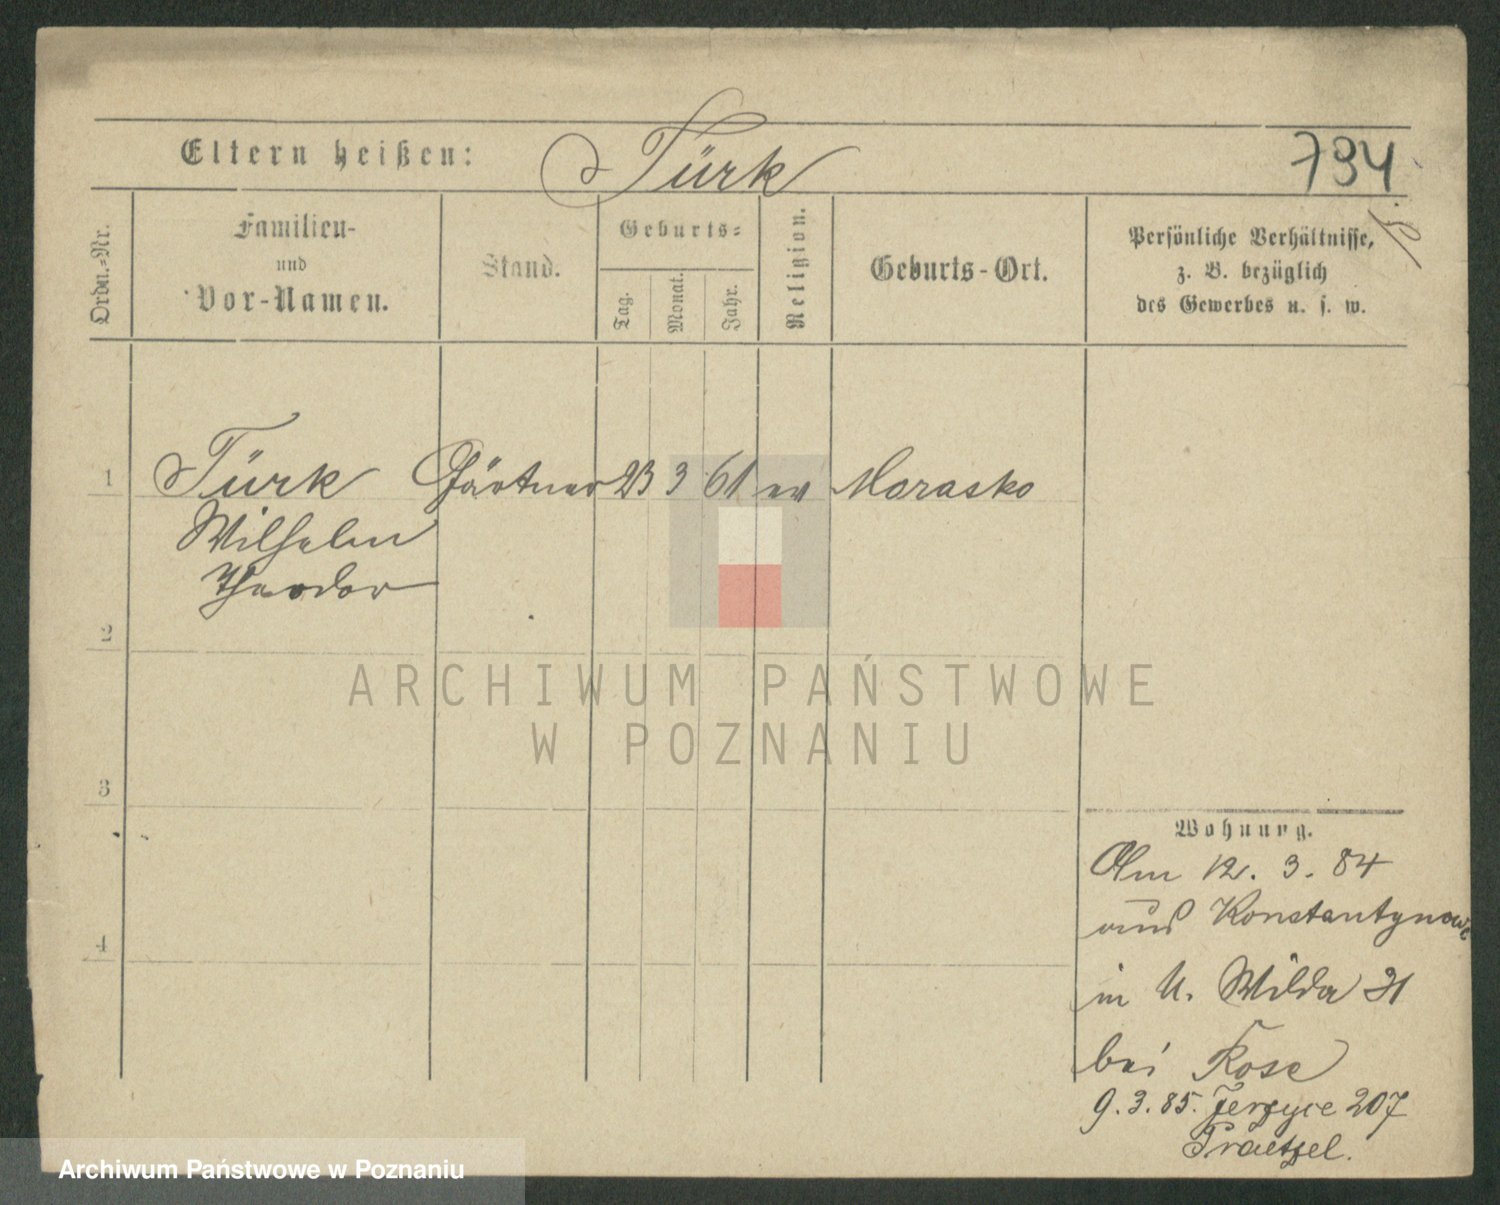 Eltern heißen: Türk 794
Ordn.-Nr.
Familien-
und
Vor-Namen.
Stand.
Geburts-
Tag.
Monat.
Jahr.
Religion.
Geburts-Ort.
Persönliche Verhältnisse,
z. B. bezüglich
des Gewerbes u. s. w.
1 Türk Gärtner 23 3 61 ev Morasko
Wilhelm
Theodor
2
ARCHIWUM PAŃSTWOWE
W POZNANIU
3
4
Wohnung.
Am 12. 3. 84
aus Konstantynowo
in U. Wilda 31
bei Rose
9. 3. 85. Jerzyce 207
Praetzel.
Archiwum Państwowe w Poznaniu